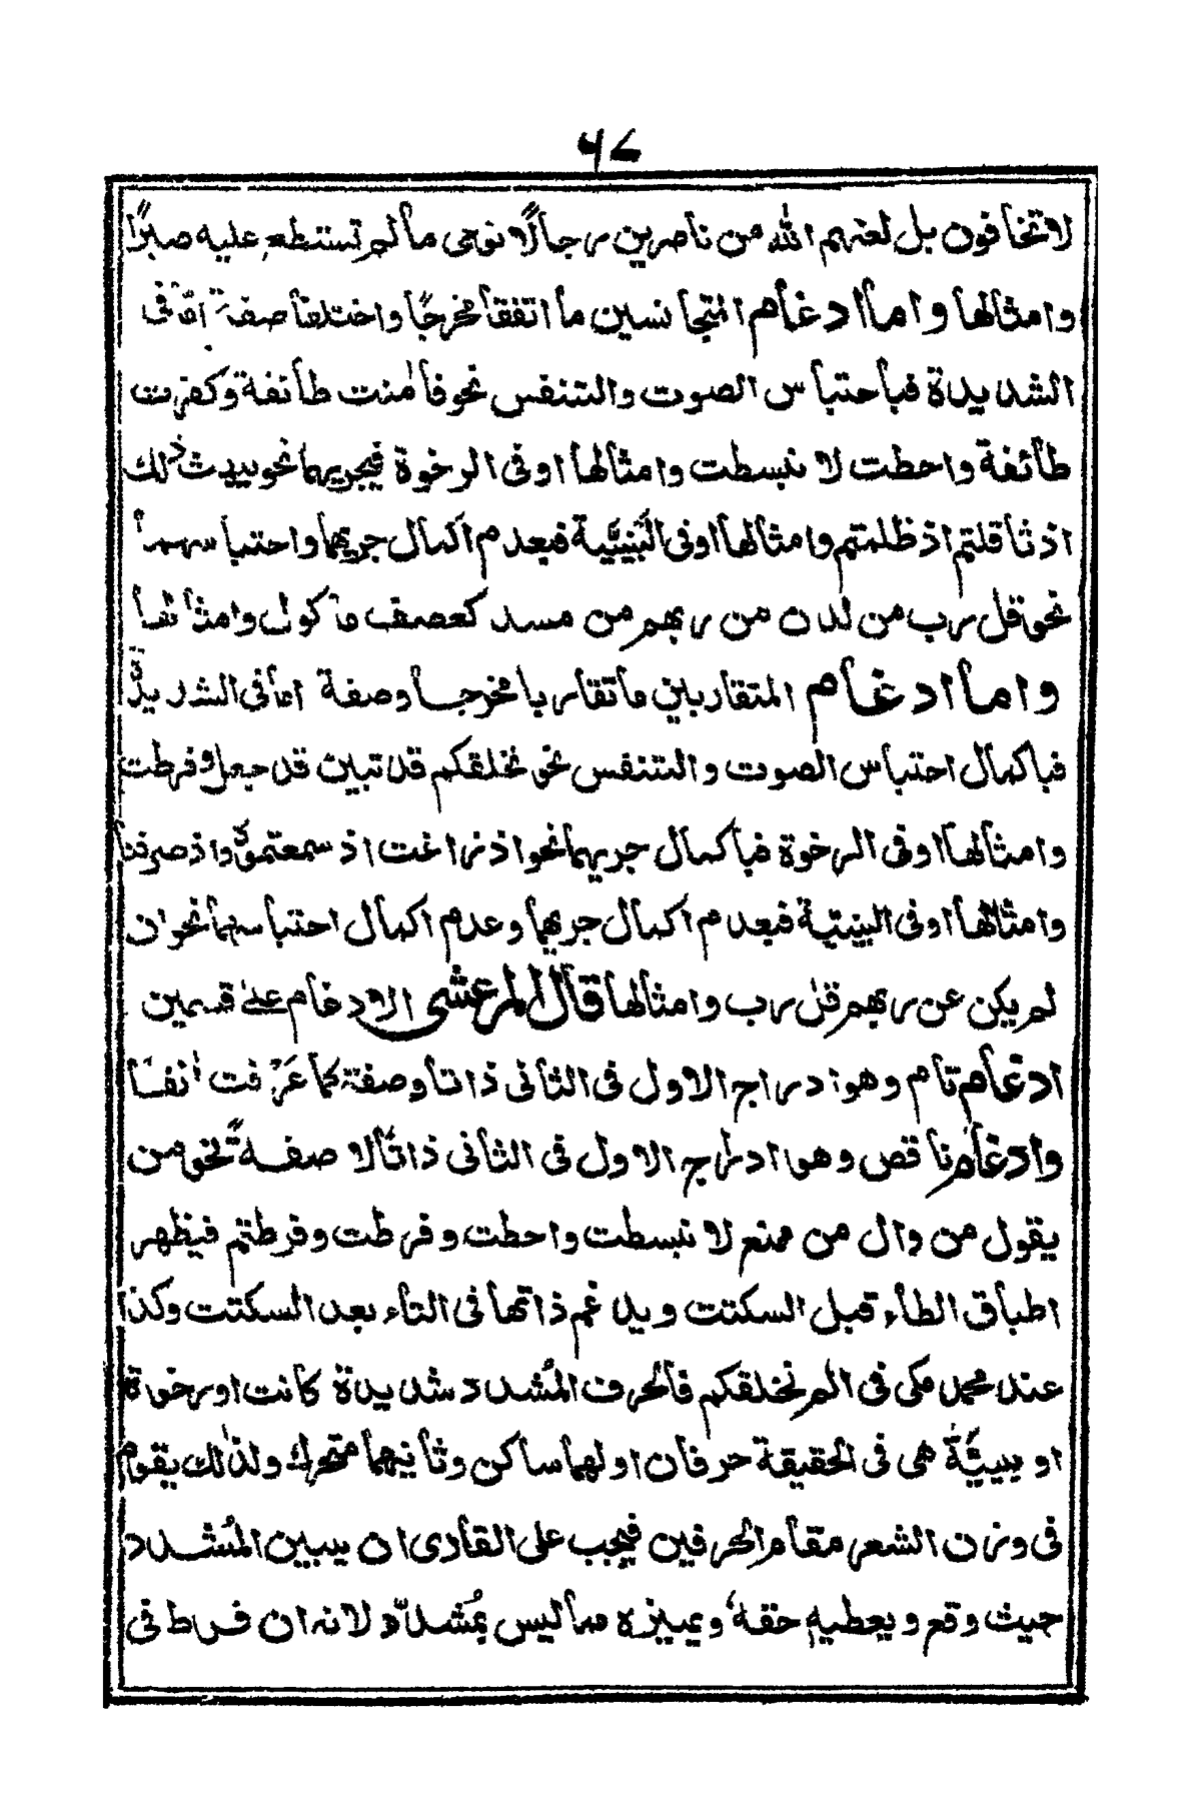 ٦٧
لا تخافون بل لعنهم الله من ناصرين رجالًا نوحى مالم تستطع عليه صبرًا
وامثالها واما ادغام المتجانسين ما اتفقا مخرجًا واختلفا صفة امّا فى
الشديدة فباحتباس الصوت والتنفس نحو فاٰمنت طائفة وكفرت
طائفة واحطت لا بسطت وامثالها اوفى الرخوة فيجريهما نحو يلهث ذٰلك
اذ ثاقلتم اذ ظلمتم وامثالها اوفى البَينِيّة فبعدم اكمال جريهما واحتباسهما
نحو قل رب من لدن من ربهم من مسد كعصف ماكول وامثالها
واما ادغام المتقاربين ماتقاربا مخرجا وصفة اما فى الشديدة
فباكمال احتباس الصوت والتنفس نحو نخلقكم قد تبين قد جعل وفرطت
وامثالها اوفى الرخوة فباكمال جريهما نحو اذ زاغت اذ سمعتموه واذ صرفنا
وامثالها اوفى البينيّة فبعدم اكمال جريهما وعدم اكمال احتباسهما نحو ان
لم يكن عن ربهم قل رب وامثالها قال المرعشى الادغام علىٰ قسمين
ادغام تام وهو ادراج الاول فى الثانى ذاتا وصفة كما عَرَفت اٰنفًا
وادغام ناقص وهو ادراج الاول فى الثانى ذاتًا لا صفةً نحو من
يقول من وال من ممنع لا بسطت واحطت وفرطت وفرطتم فيظهر
اطباق الطاء قبل السكتت ويدغم ذاتها فى التاء بعد السكتت وكذا
عند محمد مكى فى الم نخلقكم فالحرف المُشدد شديدة كانت اورخوة
او بينيَّةً هى فى الحقيقة حرفان اولهما ساكن وثانيهما متحرك ولذٰلك يقوم
فى وزن الشعر مقام الحرفين فيجب على القارى ان يبين المُشدد
حيث وقع ويعطيه حقهٗ ويميزه مما ليس بمُشدّد لانه ان فرط فى